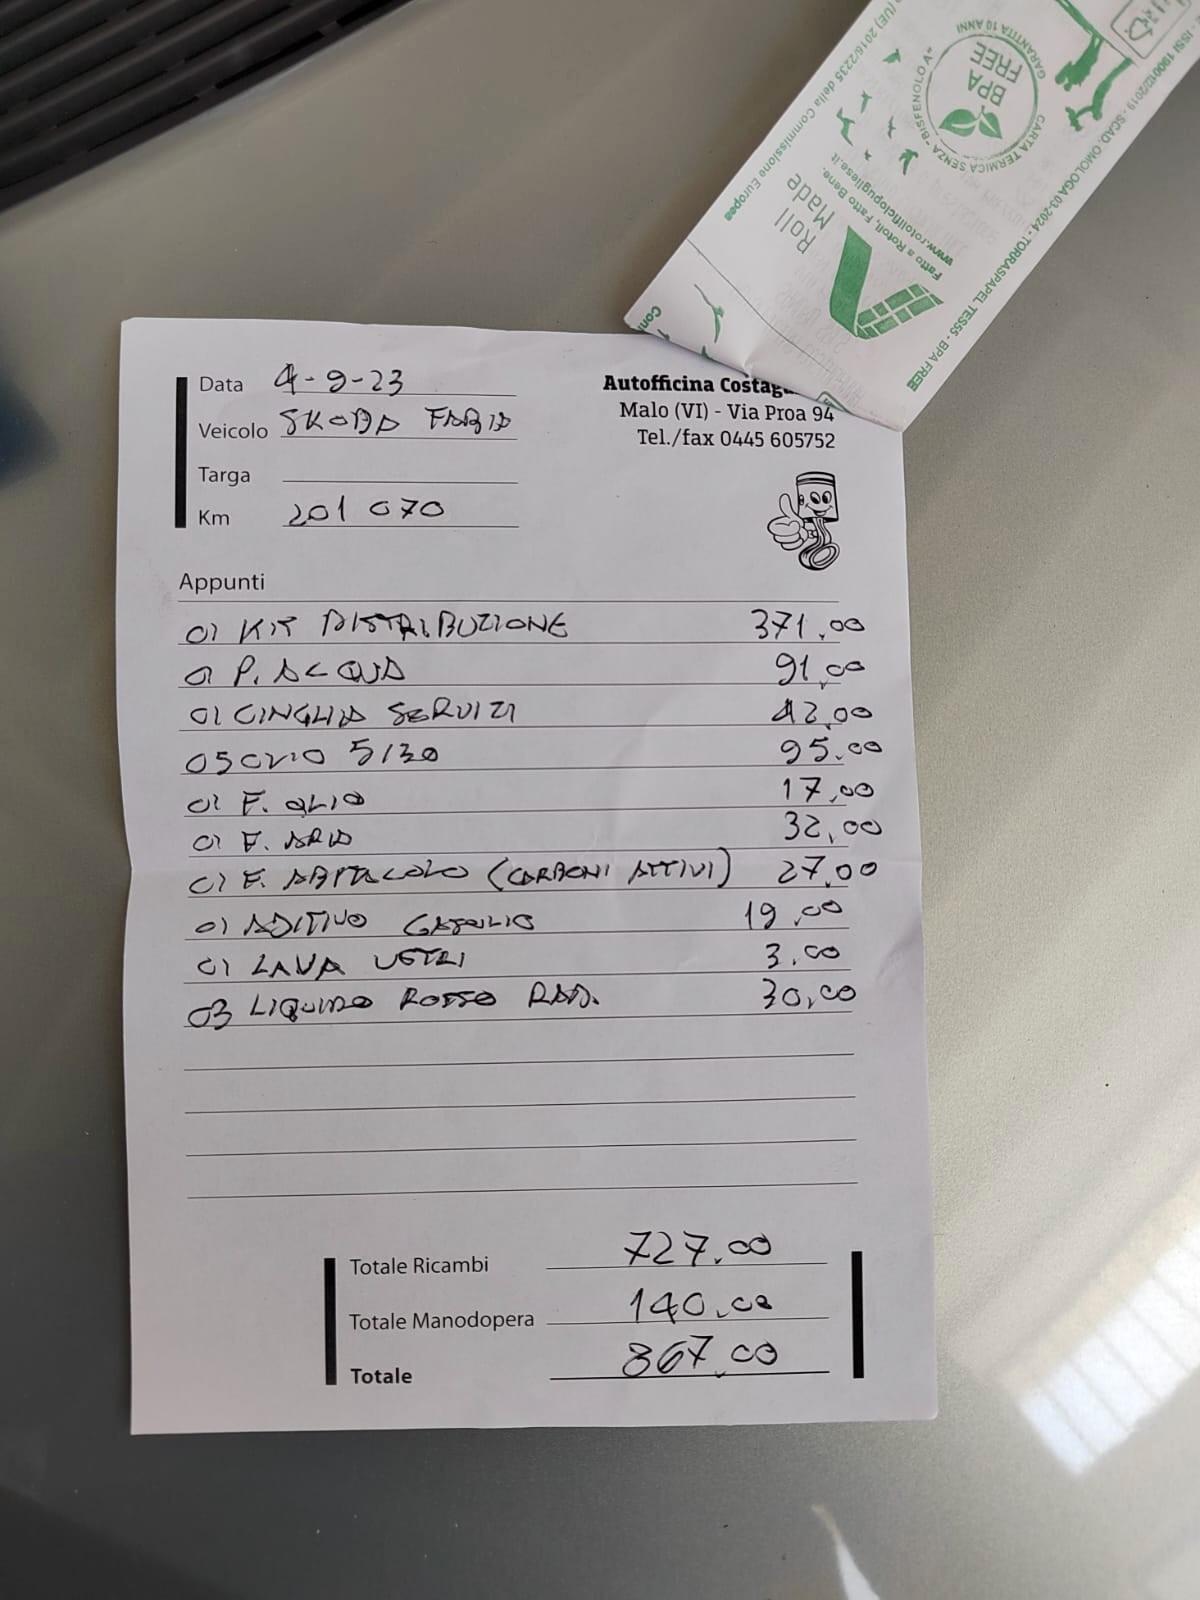 Data 4-9-23
Veicolo SKODA FABIA
Targa
Km 201 070
Autofficina Costag
Malo (VI) - Via Proa 94
Tel./fax 0445 605752
Appunti
01 KIT DISTRIBUZIONE 371,00
01 P. ACQUA 91,00
01 CINGHIA SERVIZI 42,00
05 OLIO 5/30 95.00
01 F. OLIO 17,00
01 F. ARIA 32,00
01 F. ABITACOLO (CARBONI ATTIVI) 27,00
01 ADITIVO GASOLIO 19,00
01 LAVA VETRI 3,00
03 LIQUIDO ROSSO RAD. 30,00
Totale Ricambi 727,00
Totale Manodopera 140,00
Totale 867,00
(UE) 2016/2235 della Commissione Europea
GARANTITA 10 ANNI
BPA
FREE
CARTA TERMICA SENZA "BISFENOLO A"
Roll
Made
Fatto a Rotoli, Fatto Bene.
www.rotolificiopugliese.it
SCAD. OMOLOGA 03-2024 - TORRASPAPEL TES55 - BPA FREE